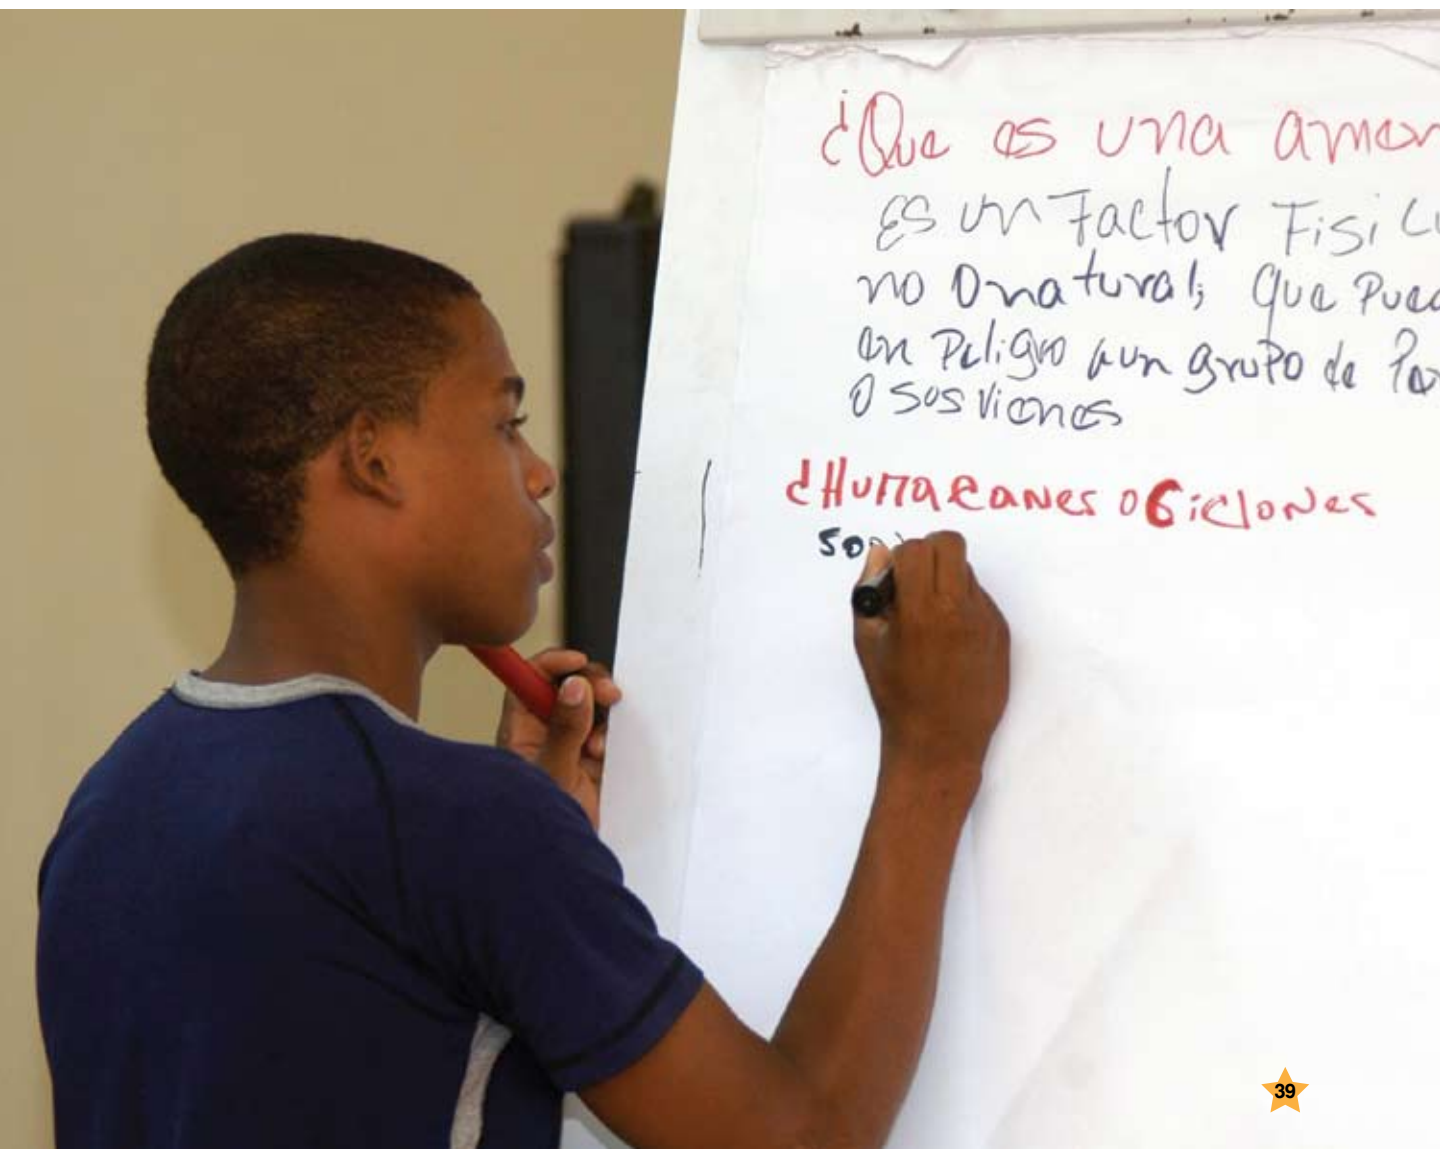 ¿Que es una amen
Es un Factor Fisic
no O natural; que Pued
en Peligro a un grupo de Per
O sos vienes
¿Hurracanes o Ciclones
son
39